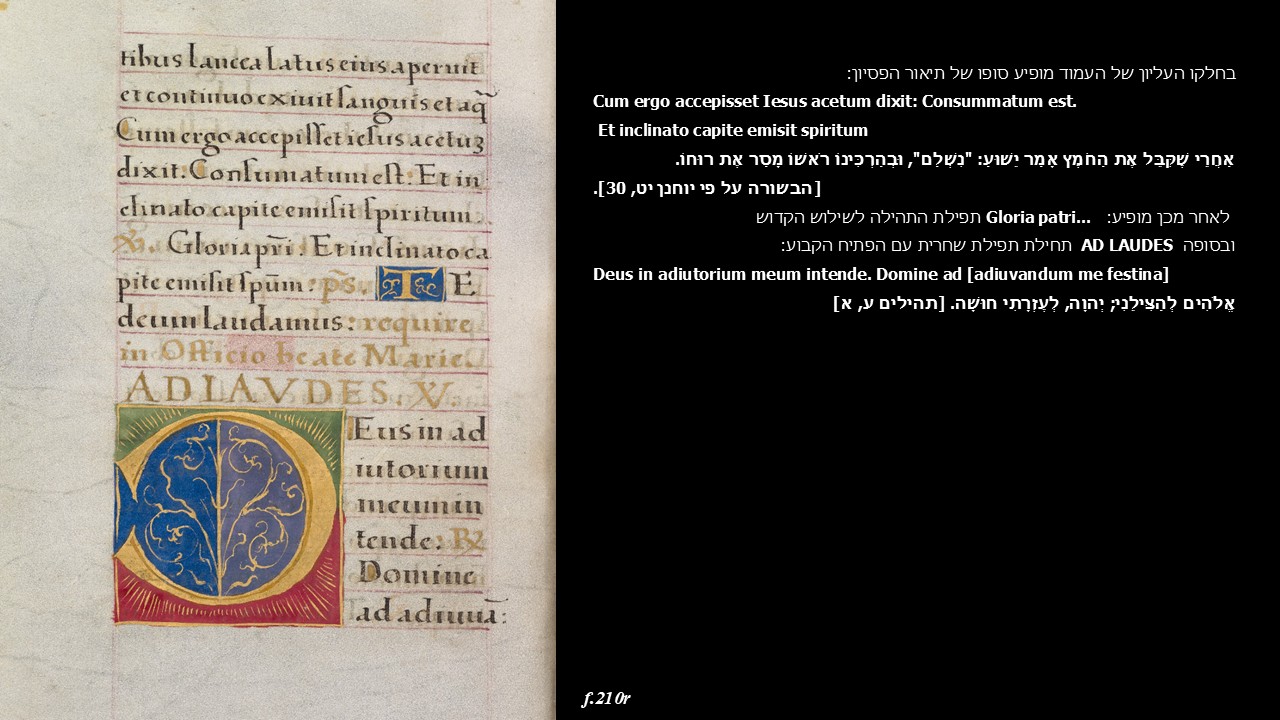 tibus lancea latus eius aperuit
et continuo exiuit sanguis et aq̃
Cum ergo accepisset iesus acetuʒ
dixit: Consumatum est: Et in
clinato capite emisit spiritum.
℣. Gloria pr̃i. Et inclinato ca
pite emisit spũm: ps̃. T E
deum laudamus: require
in Officio beate Marie.
AD LAVDES. ℣.
Eus in ad
iutorium
meum in
tende. ℟
Domine
ad adiuuã:
בחלקו העליון של העמוד מופיע סופו של תיאור הפסיון:
Cum ergo accepisset Iesus acetum dixit: Consummatum est.
Et inclinato capite emisit spiritum
אַחֲרֵי שֶׁקִּבֵּל אֶת הַחֹמֶץ אָמַר יֵשׁוּעַ: "נִשְׁלַם", וּבְהַרְכִּינוֹ רֹאשׁוֹ מָסַר אֶת רוּחוֹ.
[הבשורה על פי יוחנן יט, 30].
לאחר מכן מופיע: Gloria patri... תפילת התהילה לשילוש הקדוש
ובסופה AD LAUDES תחילת תפילת שחרית עם הפתיח הקבוע:
Deus in adiutorium meum intende. Domine ad [adiuvandum me festina]
אֱלֹהִים לְהַצִּילֵנִי; יְהוָה, לְעֶזְרָתִי חוּשָׁה. [תהילים ע, א]
f.210r